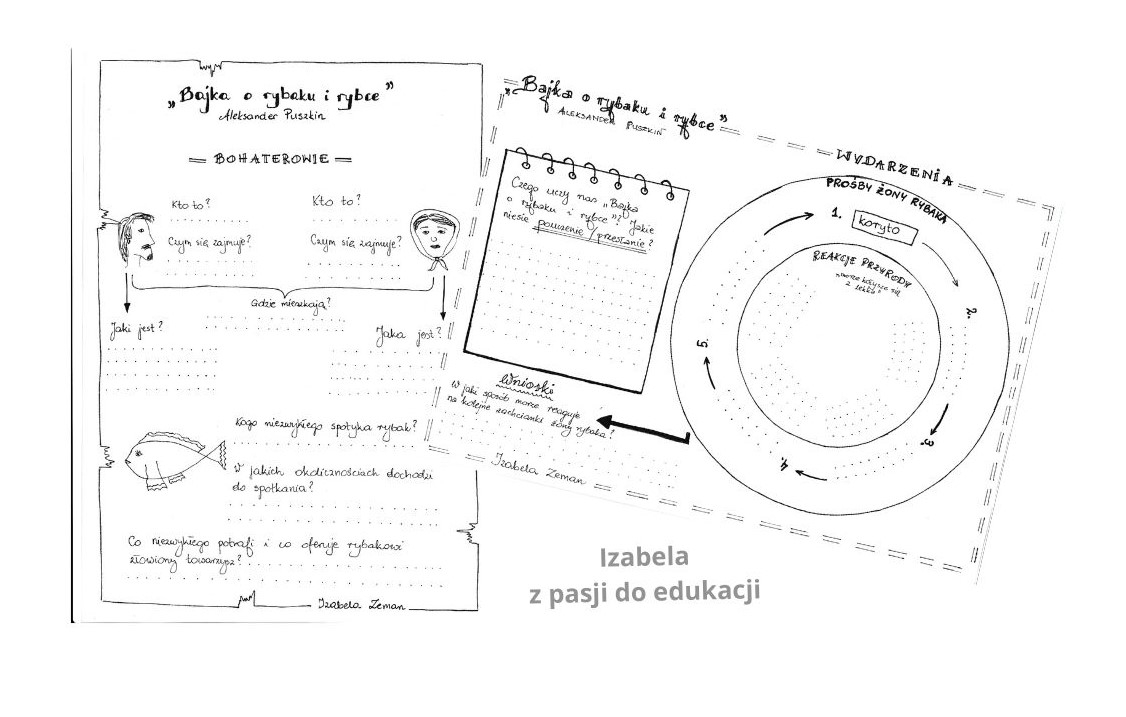 „Bajka o rybaku i rybce”
Aleksander Puszkin
BOHATEROWIE
Kto to?
Kto to?
Czym się zajmuje?
Czym się zajmuje?
Gdzie mieszkają?
Jaki jest?
Jaka jest?
Kogo niezwykłego spotyka rybak?
W jakich okolicznościach dochodzi
do spotkania?
Co niezwykłego potrafi i co oferuje rybakowi
złowiony towarzysz?
Izabela Zeman
„Bajka o rybaku i rybce”
ALEKSANDER PUSZKIN
Czego uczy nas „Bajka
o rybaku i rybce”? Jakie
niesie pouczenie/przesłanie?
Wnioski
W jaki sposób morze reaguje
na kolejne zachcianki żony rybaka?
Izabela Zeman
WYDARZENIA
PROŚBY ŻONY RYBAKA
1. koryto
REAKCJE PRZYRODY
„morze kołysze się
z lekka”
2.
3.
4.
5.
Izabela
z pasji do edukacji